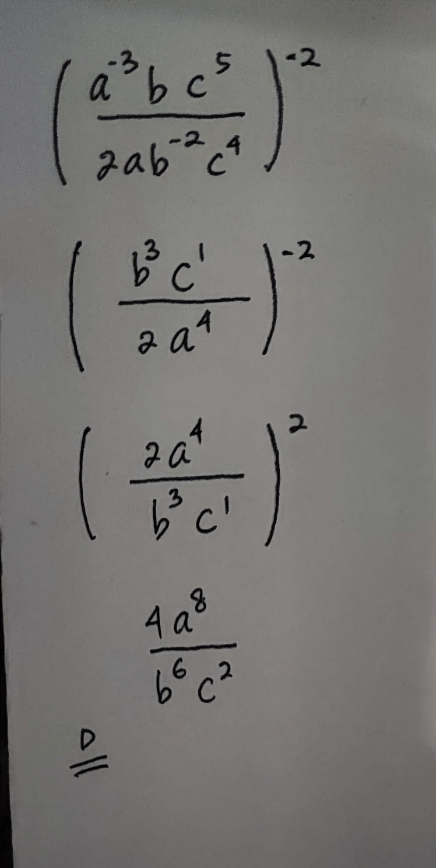 (a⁻³ b c⁵ / 2ab⁻²c⁴)⁻²
(b³ c¹ / 2a⁴)⁻²
(2a⁴ / b³ c¹)²
4a⁸ / b⁶ c²
D